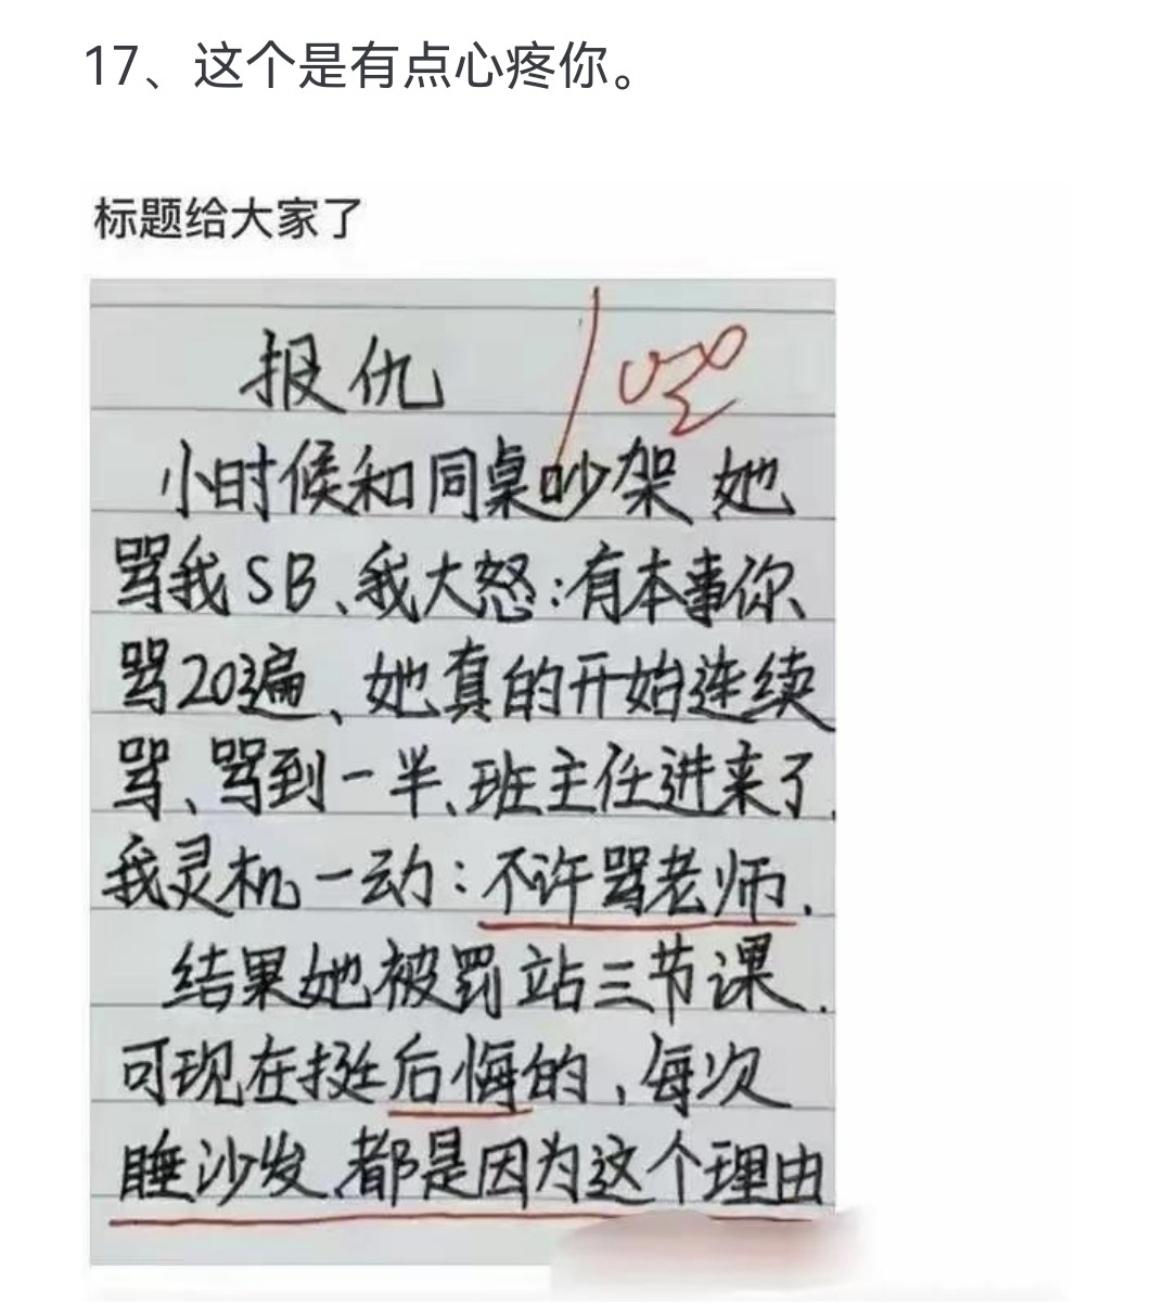 17、这个是有点心疼你。
标题给大家了
报仇
100
小时候和同桌吵架她
骂我SB、我大怒:有本事你
骂20遍、她真的开始连续
骂、骂到一半、班主任进来了.
我灵机一动:不许骂老师.
结果她被罚站三节课.
可现在挺后悔的,每次
睡沙发、都是因为这个理由